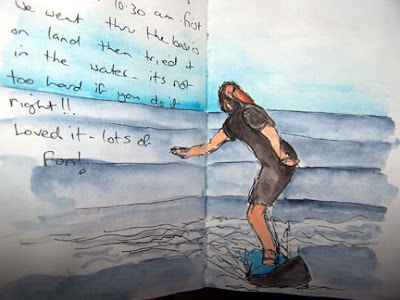 10:30 am - first
we went thru the basics
on land then tried it
in the water - its not
too hard if you do it
right!!
Loved it - lots of
fun!